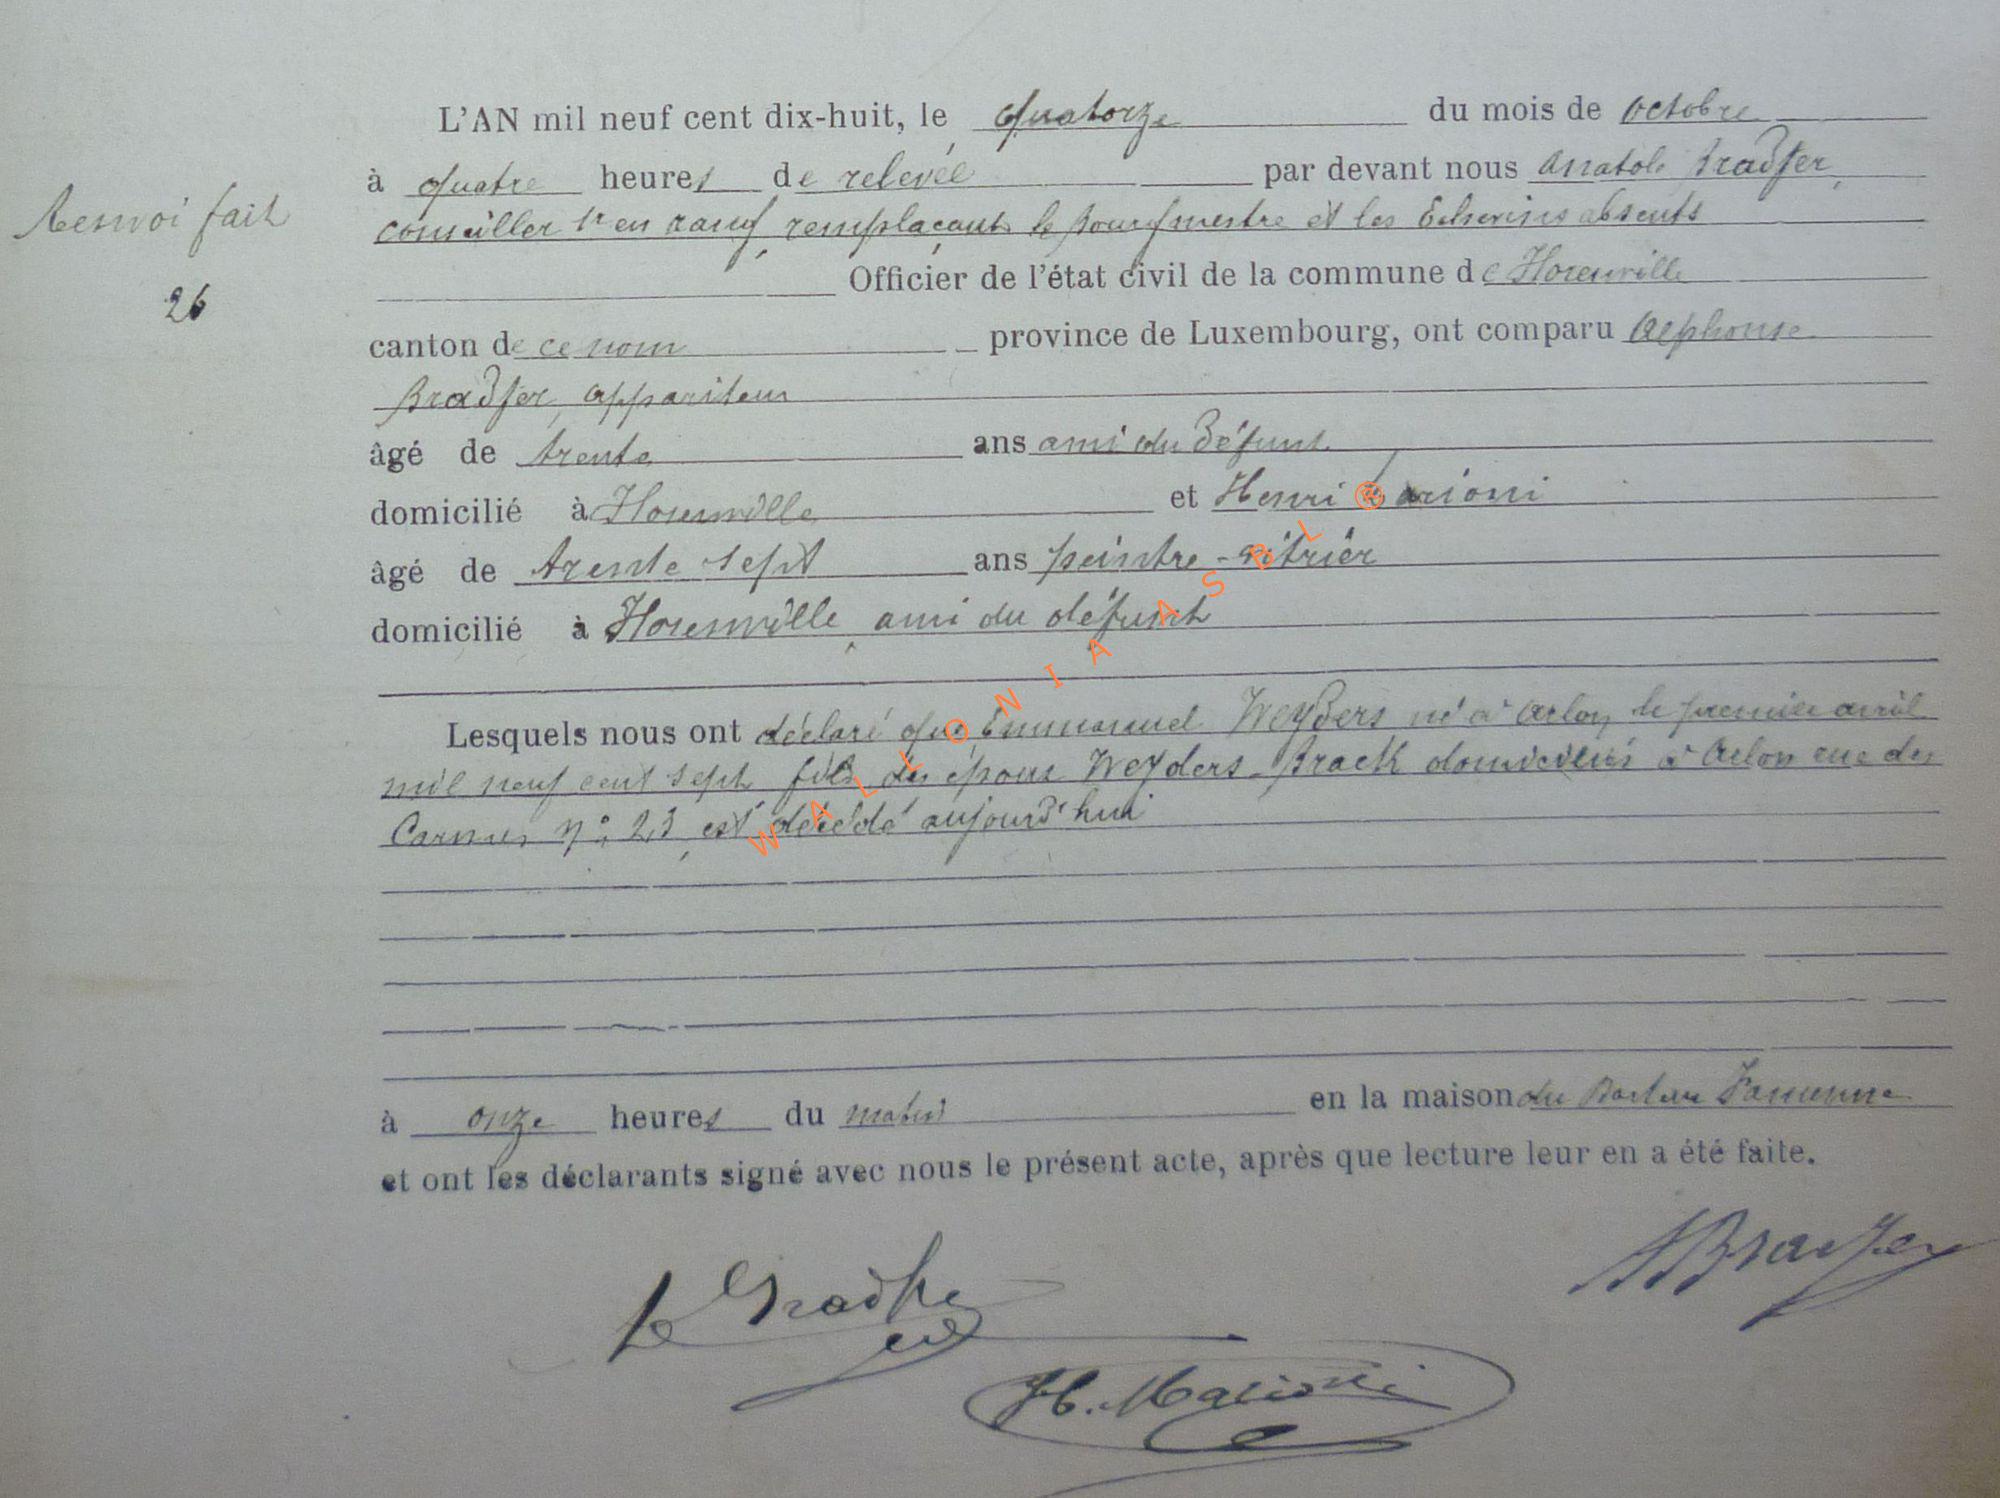 L'AN mil neuf cent dix-huit, le quatorze du mois de octobre
à quatre heures de relevée par devant nous Anatole Bradfer,
Renvoi fait
conseiller 1r en rang, remplaçant le Bourgmestre et les Echevins absents
26
Officier de l'état civil de la commune de Florenville
canton de ce nom province de Luxembourg, ont comparu Alphonse
Bradfer, appariteur
âgé de trente ans ami du défunt
domicilié à Florenville et Henri Marioni
âgé de trente sept ans peintre-vitrier
domicilié à Florenville, ami du défunt
Lesquels nous ont déclaré que Emmanuel Weyders né à Arlon le premier avril
mil neuf cent sept, fils des époux Weyders-Brack domiciliés à Arlon rue des
Carmes n° 23, est décédé aujourd'hui
à onze heures du matin en la maison du Docteur Famenne
et ont les déclarants signé avec nous le présent acte, après que lecture leur en a été faite.
ABradfer
Bradfer
H. Marioni
WALLONIA ASBL ®